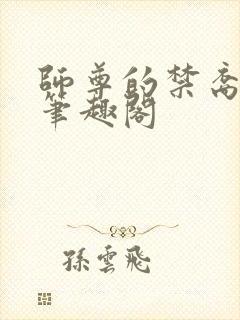 師尊的禁脔
筆趣閣
孫雲飛